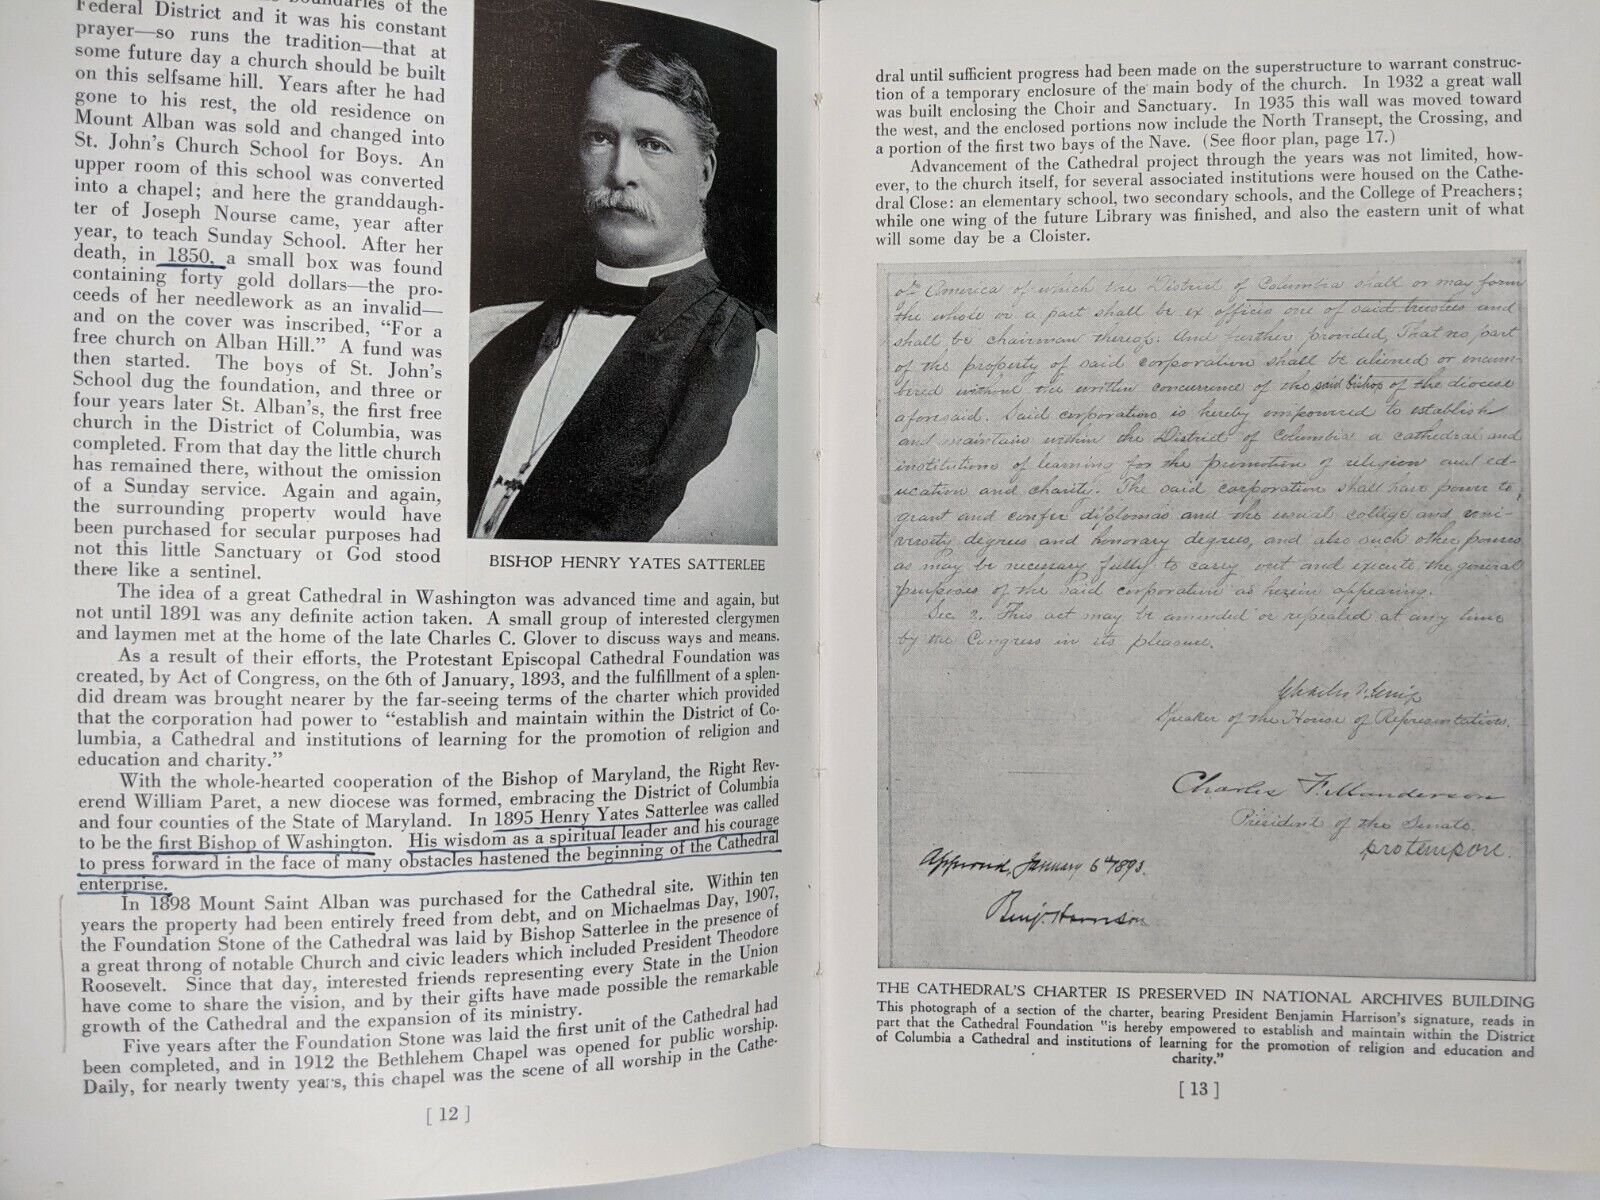 boundaries of the
Federal District and it was his constant
prayer—so runs the tradition—that at
some future day a church should be built
on this selfsame hill. Years after he had
gone to his rest, the old residence on
Mount Alban was sold and changed into
St. John's Church School for Boys. An
upper room of this school was converted
into a chapel; and here the granddaugh-
ter of Joseph Nourse came, year after
year, to teach Sunday School. After her
death, in 1850, a small box was found
containing forty gold dollars—the pro-
ceeds of her needlework as an invalid—
and on the cover was inscribed, "For a
free church on Alban Hill." A fund was
then started. The boys of St. John's
School dug the foundation, and three or
four years later St. Alban's, the first free
church in the District of Columbia, was
completed. From that day the little church
has remained there, without the omission
of a Sunday service. Again and again,
the surrounding property would have
been purchased for secular purposes had
not this little Sanctuary of God stood
there like a sentinel.
BISHOP HENRY YATES SATTERLEE
The idea of a great Cathedral in Washington was advanced time and again, but
not until 1891 was any definite action taken. A small group of interested clergymen
and laymen met at the home of the late Charles C. Glover to discuss ways and means.
As a result of their efforts, the Protestant Episcopal Cathedral Foundation was
created, by Act of Congress, on the 6th of January, 1893, and the fulfillment of a splen-
did dream was brought nearer by the far-seeing terms of the charter which provided
that the corporation had power to "establish and maintain within the District of Co-
lumbia, a Cathedral and institutions of learning for the promotion of religion and
education and charity."
With the whole-hearted cooperation of the Bishop of Maryland, the Right Rev-
erend William Paret, a new diocese was formed, embracing the District of Columbia
and four counties of the State of Maryland. In 1895 Henry Yates Satterlee was called
to be the first Bishop of Washington. His wisdom as a spiritual leader and his courage
to press forward in the face of many obstacles hastened the beginning of the Cathedral
enterprise.
In 1898 Mount Saint Alban was purchased for the Cathedral site. Within ten
years the property had been entirely freed from debt, and on Michaelmas Day, 1907,
the Foundation Stone of the Cathedral was laid by Bishop Satterlee in the presence of
a great throng of notable Church and civic leaders which included President Theodore
Roosevelt. Since that day, interested friends representing every State in the Union
have come to share the vision, and by their gifts have made possible the remarkable
growth of the Cathedral and the expansion of its ministry.
Five years after the Foundation Stone was laid the first unit of the Cathedral had
been completed, and in 1912 the Bethlehem Chapel was opened for public worship.
Daily, for nearly twenty years, this chapel was the scene of all worship in the Cathe-
[ 12 ]
dral until sufficient progress had been made on the superstructure to warrant construc-
tion of a temporary enclosure of the main body of the church. In 1932 a great wall
was built enclosing the Choir and Sanctuary. In 1935 this wall was moved toward
the west, and the enclosed portions now include the North Transept, the Crossing, and
a portion of the first two bays of the Nave. (See floor plan, page 17.)
Advancement of the Cathedral project through the years was not limited, how-
ever, to the church itself, for several associated institutions were housed on the Cathe-
dral Close: an elementary school, two secondary schools, and the College of Preachers;
while one wing of the future Library was finished, and also the eastern unit of what
will some day be a Cloister.
of America of which the District of Columbia shall or may form
the whole or a part shall be ex officio one of said trustees and
shall be chairman thereof: And further provided, That no part
of the property of said corporation shall be aliened or incum-
bered without the written concurrence of the said bishop of the diocese
aforesaid. Said corporation is hereby empowered to establish
and maintain within the District of Columbia a cathedral and
institutions of learning for the promotion of religion and ed-
ucation and charity. The said corporation shall have power to
grant and confer diplomas and the usual college and uni-
versity degrees and honorary degrees, and also such other powers
as may be necessary fully to carry out and execute the general
purposes of the said corporation as herein appearing.
Sec. 2. This act may be amended or repealed at any time
by the Congress in its pleasure.
Charles
Speaker of the House of Representatives.
Charles F. Manderson
President of the Senate
pro tempore.
Approved, January 6th 1893.
Benj. Harrison
THE CATHEDRAL'S CHARTER IS PRESERVED IN NATIONAL ARCHIVES BUILDING
This photograph of a section of the charter, bearing President Benjamin Harrison's signature, reads in
part that the Cathedral Foundation "is hereby empowered to establish and maintain within the District
of Columbia a Cathedral and institutions of learning for the promotion of religion and education and
charity."
[ 13 ]